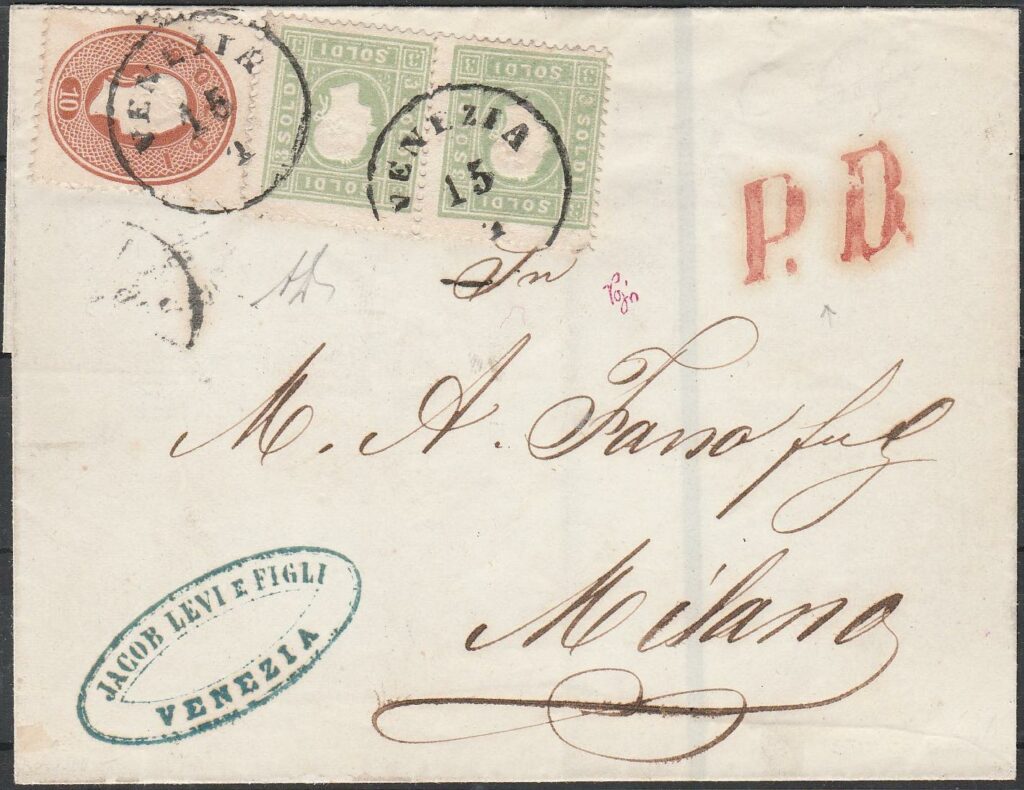 10
SOLDI
3 SOLDI
SOLDI
SOLDI
SOLDI
3 SOLDI
SOLDI
VENEZIA
15
VENEZIA
15
P. D.
In
M. A. Fano fu G
Milano
JACOB LEVI E FIGLI
VENEZIA